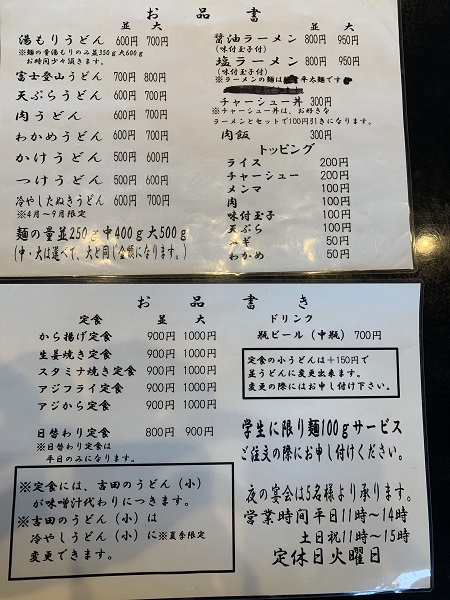 お品書
並 大
湯もりうどん 600円 700円
※麺の量湯もりのみ並350g大600g
お時間少々頂きます。
富士登山うどん 700円 800円
天ぷらうどん 600円 700円
肉うどん 600円 700円
わかめうどん 600円 700円
かけうどん 500円 600円
つけうどん 500円 600円
冷やしたぬきうどん 600円 700円
※4月～9月限定
麺の量並250g中400g大500g
(中・大は選べて、大と同じ金額になります。)
並 大
醤油ラーメン 800円 950円
(味付玉子付)
塩ラーメン 800円 950円
(味付玉子付)
※ラーメンの麺は 平太麺です
チャーシュー丼 300円
※チャーシュー丼は、お好きな
ラーメンとセットで100円引きになります。
肉飯 300円
トッピング
ライス 200円
チャーシュー 200円
メンマ 100円
肉 100円
味付玉子 100円
天ぷら 100円
ネギ 50円
わかめ 50円
お品書き
定食 並 大
から揚げ定食 900円 1000円
生姜焼き定食 900円 1000円
スタミナ焼き定食 900円 1000円
アジフライ定食 900円 1000円
アジから定食 900円 1000円
日替わり定食 800円 900円
※日替わり定食は
平日のみになります。
※定食には、吉田のうどん(小)
が味噌汁代わりにつきます。
※吉田のうどん(小)は
冷やしうどん(小)に※夏季限定
変更できます。
ドリンク
瓶ビール(中瓶) 700円
定食の小うどんは+150円で
並うどんに変更出来ます。
変更の際にはお申し付け下さい。
学生に限り麺100gサービス
ご注文の際にお申し付けください。
夜の宴会は5名様より承ります。
営業時間 平日11時～14時
土日祝11時～15時
定休日火曜日